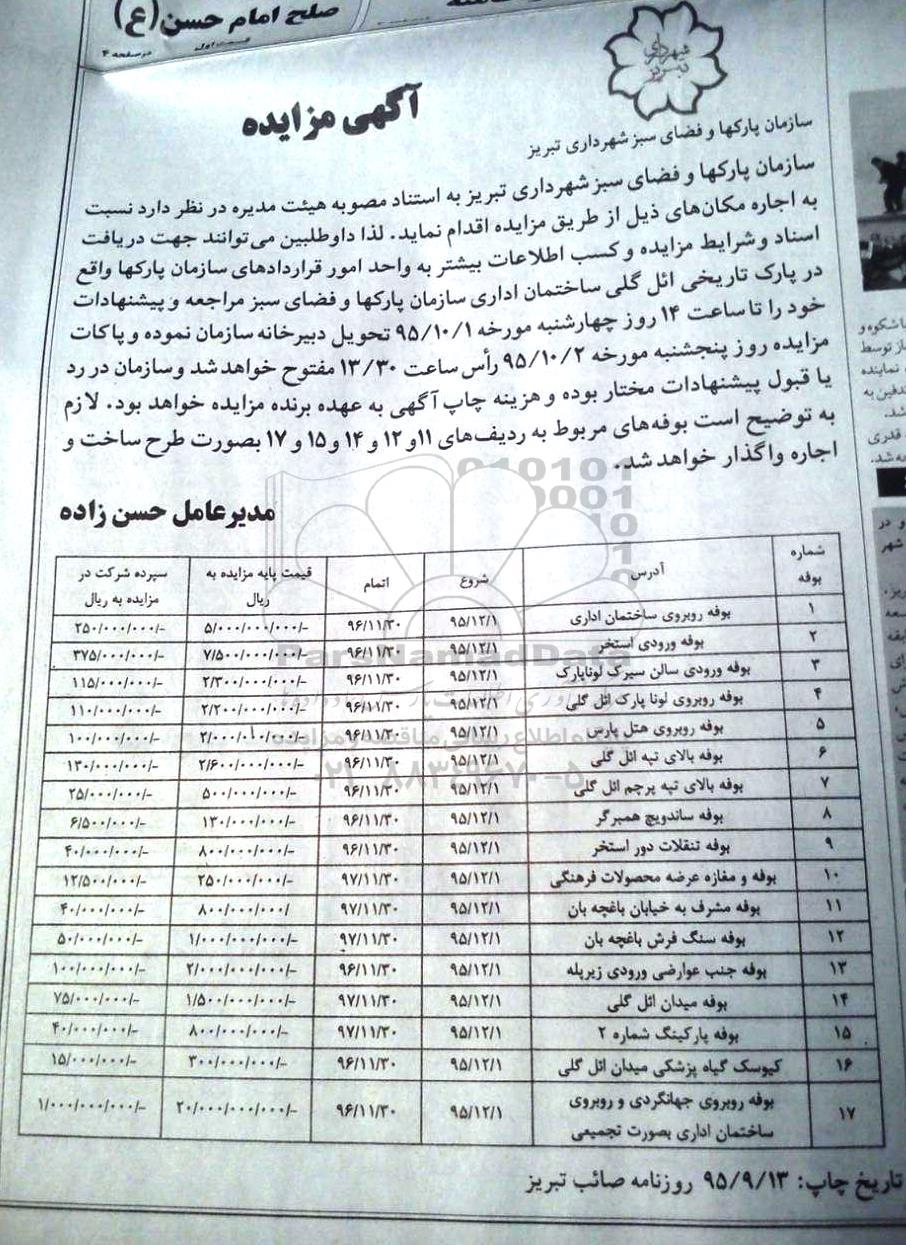 صلح امام حسن(ع)
قسمت اول
در صفحه ۴
شهرداری تبریز
آگهی مزایده
سازمان پارکها و فضای سبز شهرداری تبریز
سازمان پارکها و فضای سبز شهرداری تبریز به استناد مصوبه هیئت مدیره در نظر دارد نسبت
به اجاره مکان‌های ذیل از طریق مزایده اقدام نماید. لذا داوطلبین می‌توانند جهت دریافت
اسناد و شرایط مزایده و کسب اطلاعات بیشتر به واحد امور قراردادهای سازمان پارکها واقع
در پارک تاریخی ائل گلی ساختمان اداری سازمان پارکها و فضای سبز مراجعه و پیشنهادات
خود را تا ساعت ۱۴ روز چهارشنبه مورخه ۹۵/۱۰/۱ تحویل دبیرخانه سازمان نموده و پاکات
مزایده روز پنجشنبه مورخه ۹۵/۱۰/۲ رأس ساعت ۱۳/۳۰ مفتوح خواهد شد و سازمان در رد
یا قبول پیشنهادات مختار بوده و هزینه چاپ آگهی به عهده برنده مزایده خواهد بود. لازم
به توضیح است بوفه‌های مربوط به ردیف‌های ۱۱و ۱۲ و ۱۴ و ۱۵ و ۱۷ بصورت طرح ساخت و
اجاره واگذار خواهد شد.
مدیرعامل حسن زاده
شماره بوفه آدرس شروع اتمام قیمت پایه مزایده به ریال سپرده شرکت در مزایده به ریال
۱ بوفه روبروی ساختمان اداری ۹۵/۱۲/۱ ۹۶/۱۱/۳۰ ۵/۰۰۰/۰۰۰/۰۰۰/- ۲۵۰/۰۰۰/۰۰۰/-
۲ بوفه ورودی استخر ۹۵/۱۲/۱ ۹۶/۱۱/۳۰ ۷/۵۰۰/۰۰۰/۰۰۰/- ۳۷۵/۰۰۰/۰۰۰/-
۳ بوفه ورودی سالن سیرک لوناپارک ۹۵/۱۲/۱ ۹۶/۱۱/۳۰ ۲/۳۰۰/۰۰۰/۰۰۰/- ۱۱۵/۰۰۰/۰۰۰/-
۴ بوفه روبروی لونا پارک ائل گلی ۹۵/۱۲/۱ ۹۶/۱۱/۳۰ ۲/۲۰۰/۰۰۰/۰۰۰/- ۱۱۰/۰۰۰/۰۰۰/-
۵ بوفه روبروی هتل پارس ۹۵/۱۲/۱ ۹۶/۱۱/۳۰ ۲/۰۰۰/۰۰۰/۰۰۰/- ۱۰۰/۰۰۰/۰۰۰/-
۶ بوفه بالای تپه ائل گلی ۹۵/۱۲/۱ ۹۶/۱۱/۳۰ ۲/۶۰۰/۰۰۰/۰۰۰/- ۱۳۰/۰۰۰/۰۰۰/-
۷ بوفه بالای تپه پرچم ائل گلی ۹۵/۱۲/۱ ۹۶/۱۱/۳۰ ۵۰۰/۰۰۰/۰۰۰/- ۲۵/۰۰۰/۰۰۰/-
۸ بوفه ساندویچ همبرگر ۹۵/۱۲/۱ ۹۶/۱۱/۳۰ ۱۳۰/۰۰۰/۰۰۰/- ۶/۵۰۰/۰۰۰/-
۹ بوفه تنقلات دور استخر ۹۵/۱۲/۱ ۹۶/۱۱/۳۰ ۸۰۰/۰۰۰/۰۰۰/- ۴۰/۰۰۰/۰۰۰/-
۱۰ بوفه و مغازه عرضه محصولات فرهنگی ۹۵/۱۲/۱ ۹۷/۱۱/۳۰ ۲۵۰/۰۰۰/۰۰۰/- ۱۲/۵۰۰/۰۰۰/-
۱۱ بوفه مشرف به خیابان باغچه بان ۹۵/۱۲/۱ ۹۷/۱۱/۳۰ ۸۰۰/۰۰۰/۰۰۰/ ۴۰/۰۰۰/۰۰۰/-
۱۲ بوفه سنگ فرش باغچه بان ۹۵/۱۲/۱ ۹۷/۱۱/۳۰ ۱/۰۰۰/۰۰۰/۰۰۰/- ۵۰/۰۰۰/۰۰۰/-
۱۳ بوفه جنب عوارضی ورودی زیرپله ۹۵/۱۲/۱ ۹۶/۱۱/۳۰ ۲/۰۰۰/۰۰۰/۰۰۰/- ۱۰۰/۰۰۰/۰۰۰/-
۱۴ بوفه میدان ائل گلی ۹۵/۱۲/۱ ۹۷/۱۱/۳۰ ۱/۵۰۰/۰۰۰/۰۰۰/- ۷۵/۰۰۰/۰۰۰/-
۱۵ بوفه پارکینگ شماره ۲ ۹۵/۱۲/۱ ۹۷/۱۱/۳۰ ۸۰۰/۰۰۰/۰۰۰/- ۴۰/۰۰۰/۰۰۰/-
۱۶ کیوسک گیاه پزشکی میدان ائل گلی ۹۵/۱۲/۱ ۹۶/۱۱/۳۰ ۳۰۰/۰۰۰/۰۰۰/- ۱۵/۰۰۰/۰۰۰/-
۱۷ بوفه روبروی جهانگردی و روبروی ساختمان اداری بصورت تجمیعی ۹۵/۱۲/۱ ۹۶/۱۱/۳۰ ۲۰/۰۰۰/۰۰۰/۰۰۰/- ۱/۰۰۰/۰۰۰/۰۰۰/-
تاریخ چاپ: ۹۵/۹/۱۳ روزنامه صائب تبریز
ParsNamadData
۰۲۱-۸۸۳۴۹۶۷۰-۵